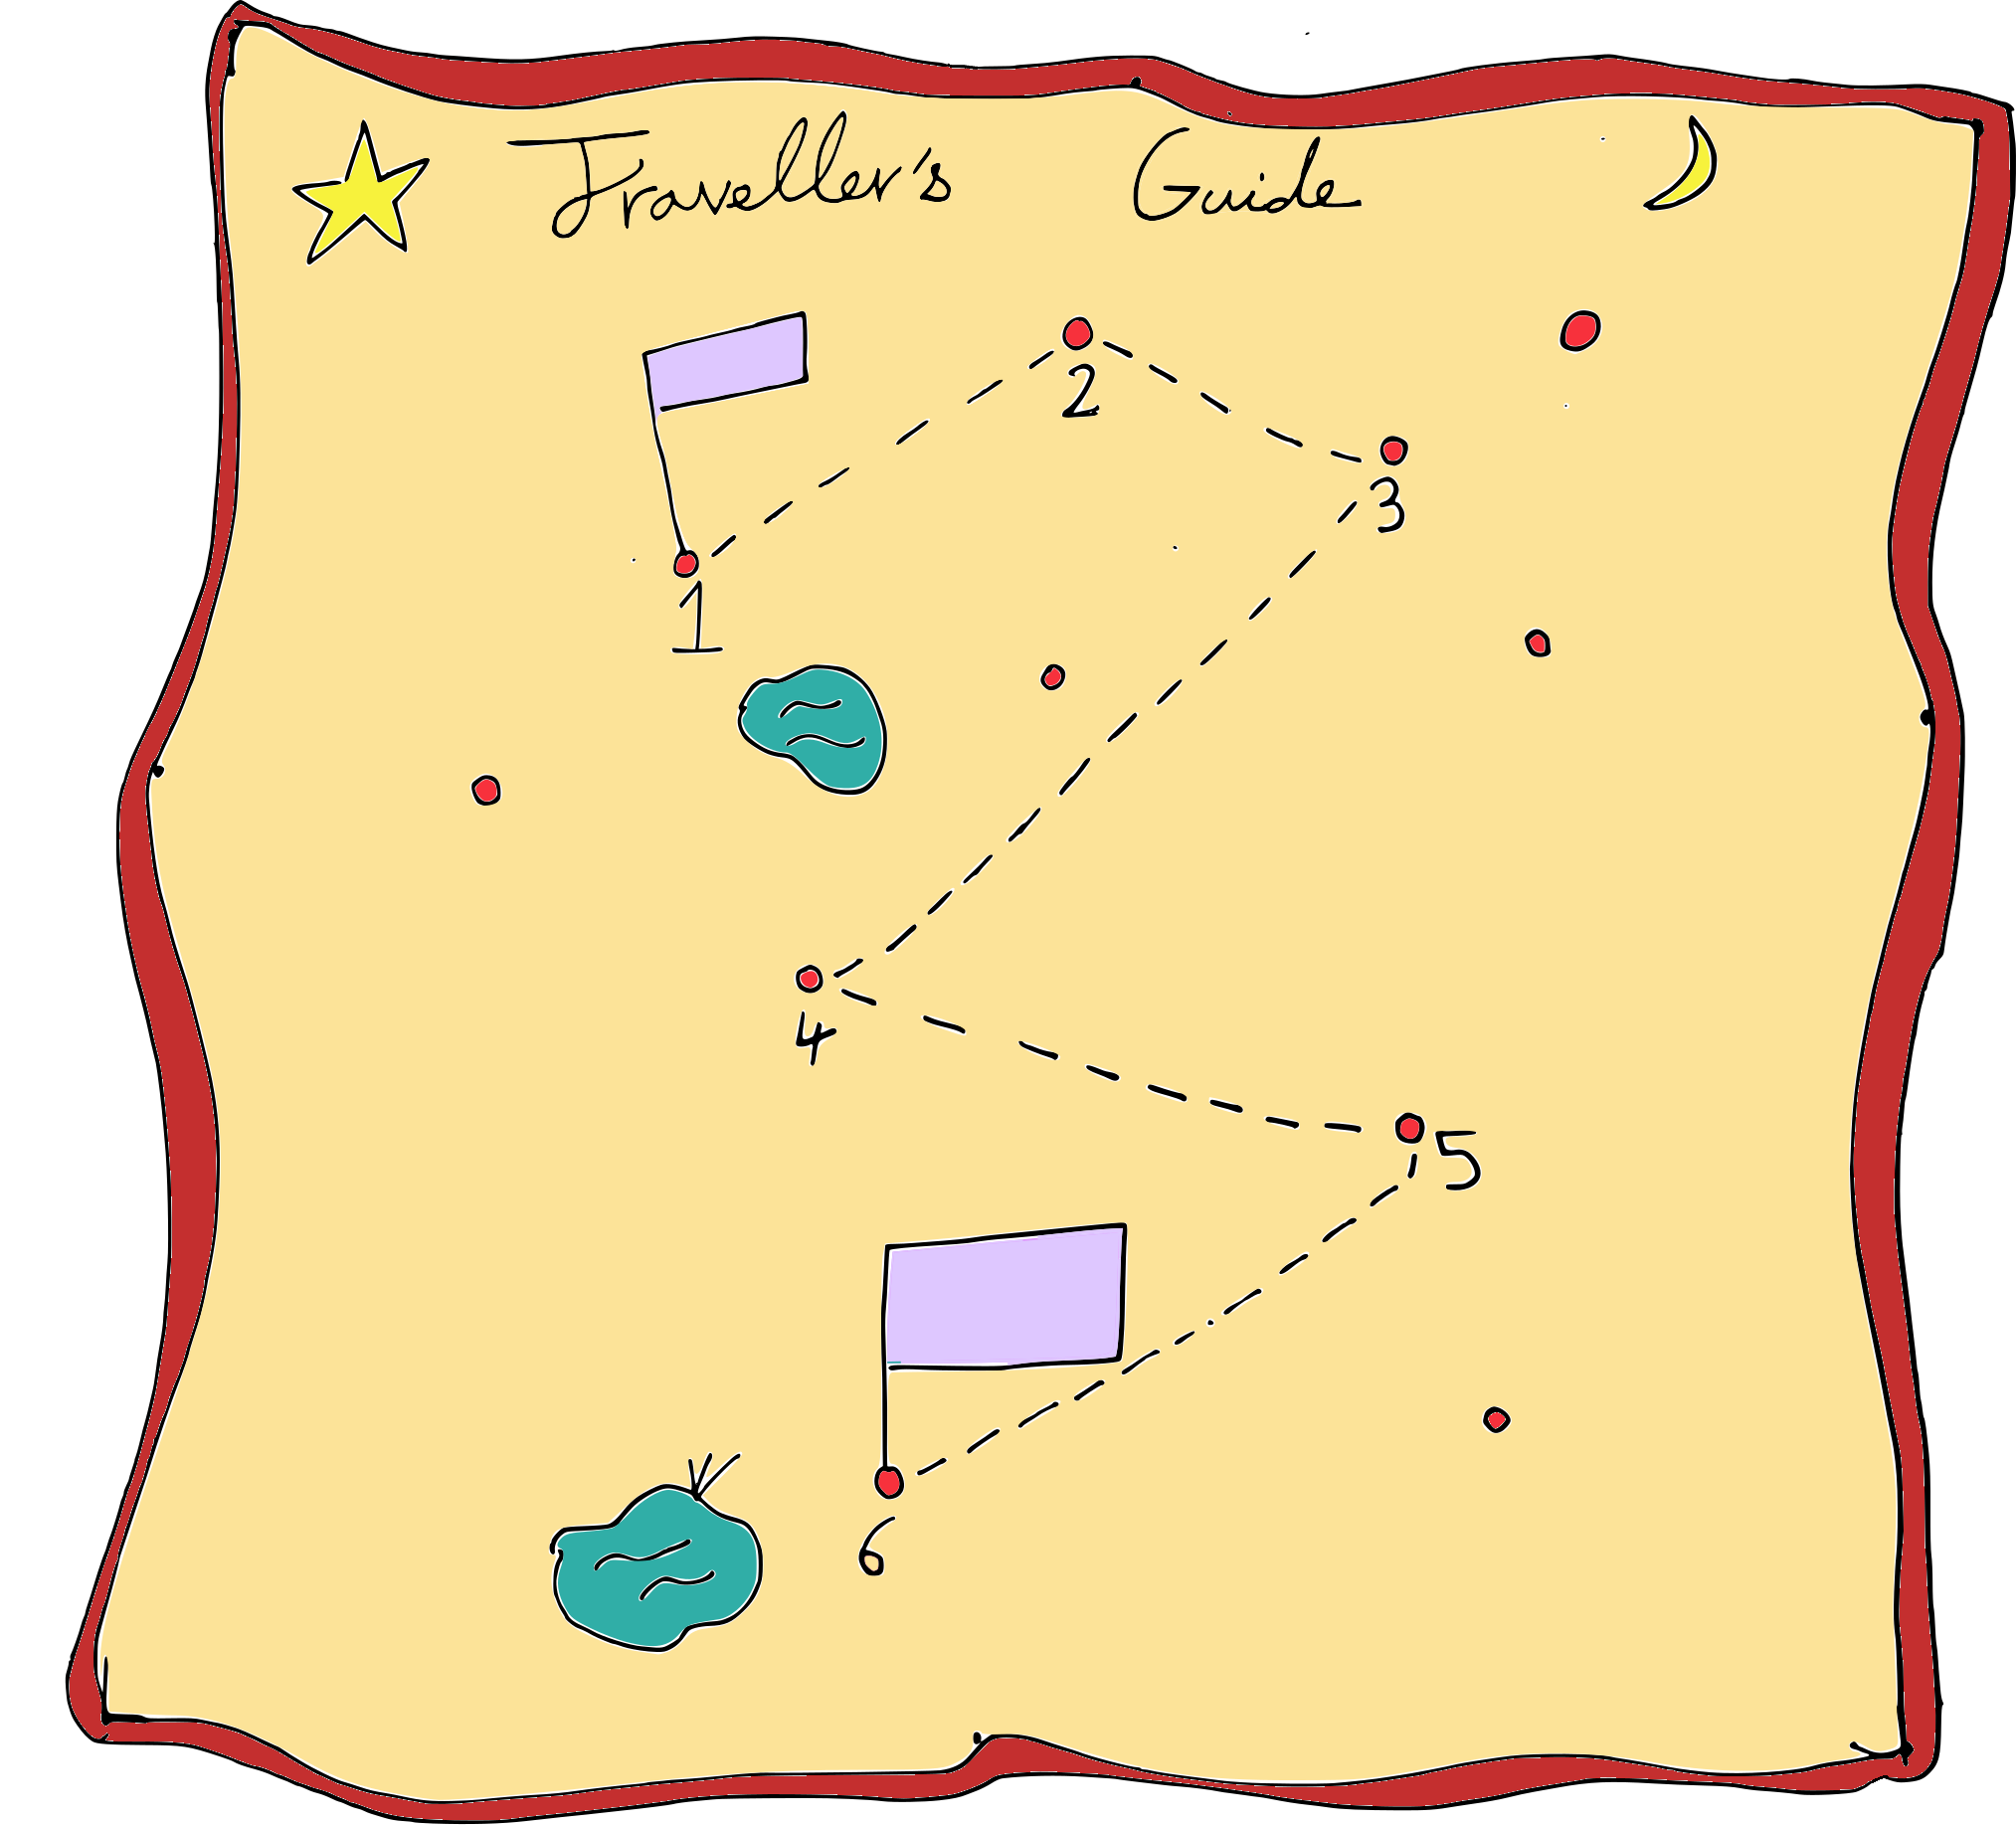 Traveller's Guide
2
3
1
4
5
6